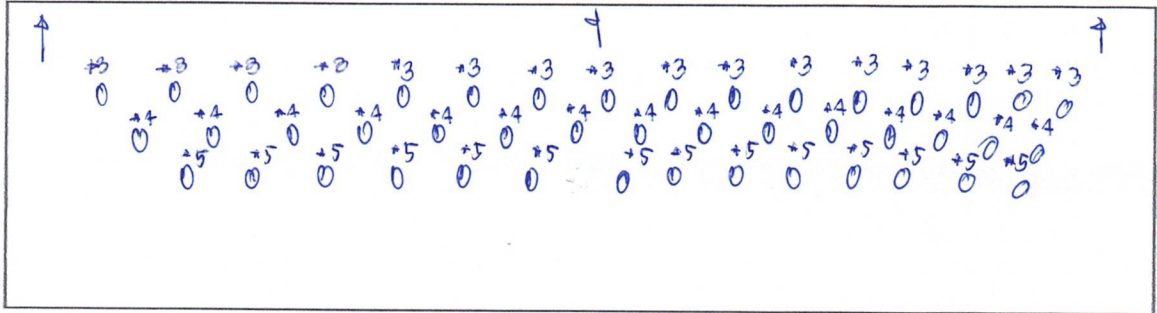 *3 *3 *3 *3 *3 *3 *3 *3 *3 *3 *3 *3 *3 *3 *3 *3
*4 *4 *4 *4 *4 *4 *4 *4 *4 *4 *4 *4 *4 *4 *4
*5 *5 *5 *5 *5 *5 *5 *5 *5 *5 *5 *5 *5 *5